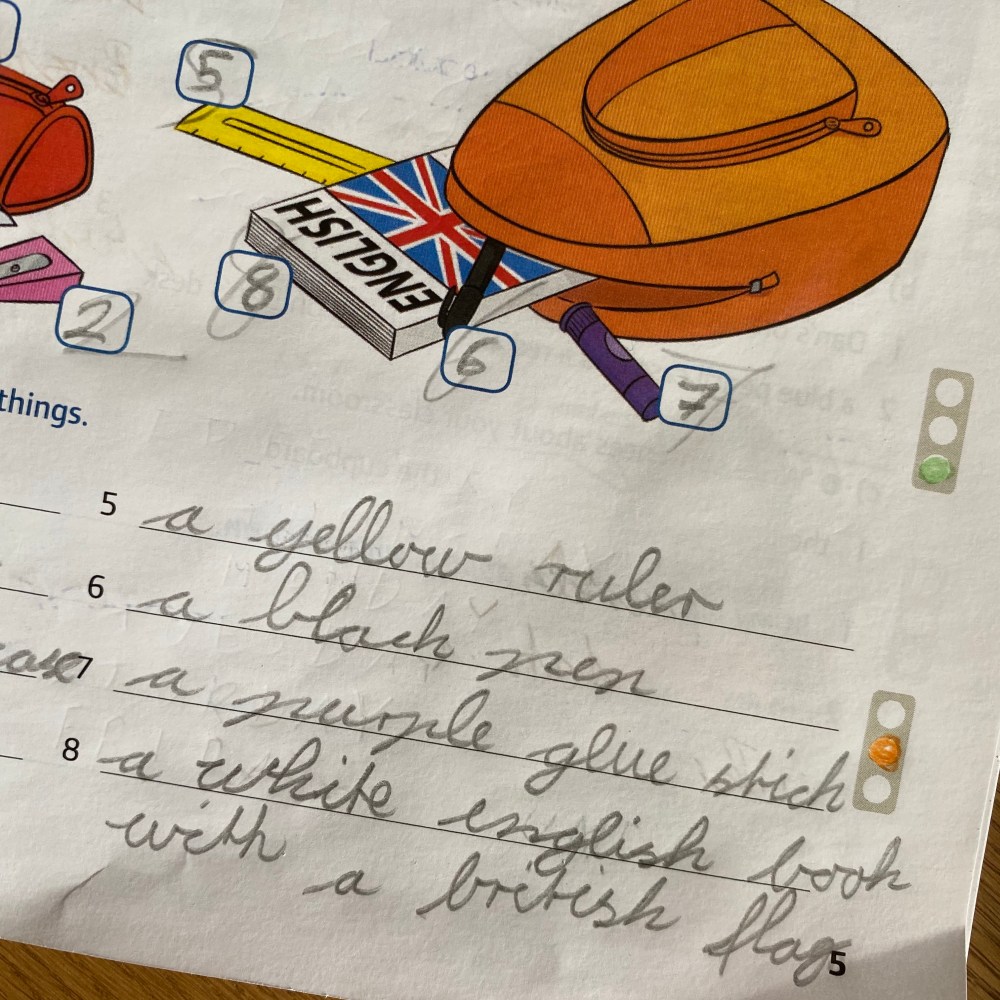 5
ENGLISH
8
2
6
7
things.
5 a yellow ruler
6 a black pen
7 a purple glue stick
8 a white english book
with a british flag
5